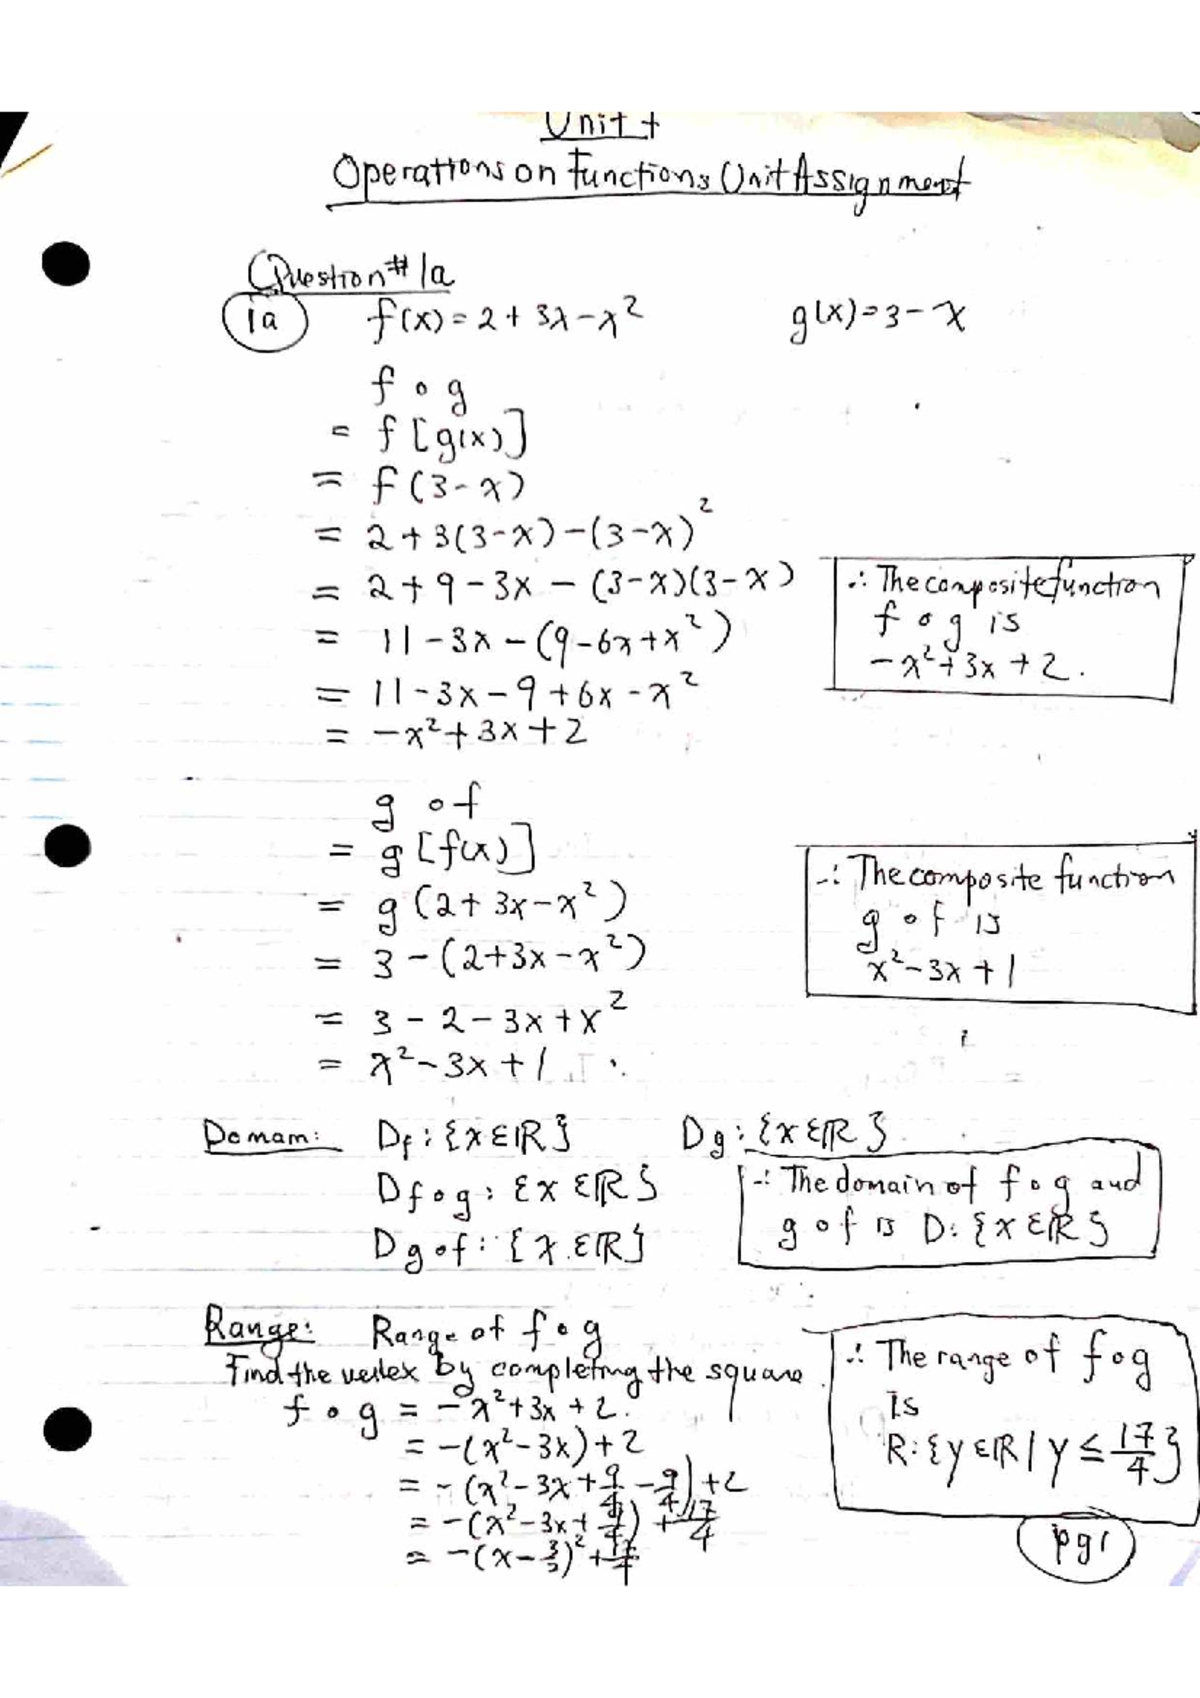 Unit
Operations on Functions Unit Assignment
Question # 1a
1a f(x) = 2 + 3x - x² g(x) = 3 - x
f ∘ g
= f [g(x)]
= f (3 - x)
= 2 + 3(3-x) - (3-x)²
= 2 + 9 - 3x - (3-x)(3-x)
= 11 - 3x - (9 - 6x + x²)
= 11 - 3x - 9 + 6x - x²
= -x² + 3x + 2
∴ The composite function
f ∘ g is
-x² + 3x + 2.
g ∘ f
= g [f(x)]
= g (2 + 3x - x²)
= 3 - (2 + 3x - x²)
= 3 - 2 - 3x + x²
= x² - 3x + 1
∴ The composite function
g ∘ f is
x² - 3x + 1
Domain: Df : {x ∈ ℝ} Dg : {x ∈ ℝ}
Df∘g : {x ∈ ℝ}
Dg∘f : {x ∈ ℝ}
∴ The domain of f ∘ g and
g ∘ f is D: {x ∈ ℝ}
Range: Range of f ∘ g
Find the vertex by completing the square
f ∘ g = -x² + 3x + 2.
= -(x² - 3x) + 2
= -(x² - 3x + 9/4 - 9/4) + 2
= -(x² - 3x + 9/4) + 17/4
= -(x - 3/2)² + 17/4
∴ The range of f ∘ g
is
R: {y ∈ ℝ | y ≤ 17/4}
pg 1